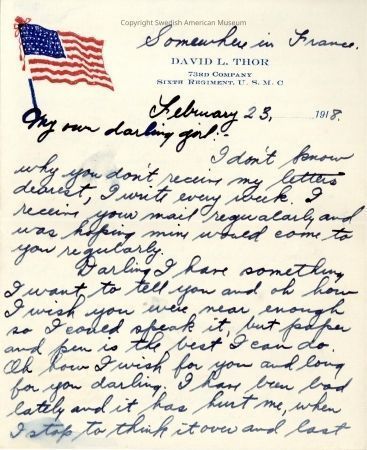 Copyright Swedish American Museum
Somewhere in France.
DAVID L. THOR
73RD COMPANY
SIXTH REGIMENT, U. S. M. C
February 23, 1918.
My own darling girl:-
I don't know
why you don't receive my letters
dearest, I write every week. I
receive your mail regualarly and
was hoping mine would come to
you regularly.
Darling I have something
I want to tell you and oh how
I wish you were near enough
so I could speak it, but paper
and pen is the best I can do.
Oh how I wish for you and long
for you darling. I have been bad
lately and it has hurt me, when
I stop to think it over and last